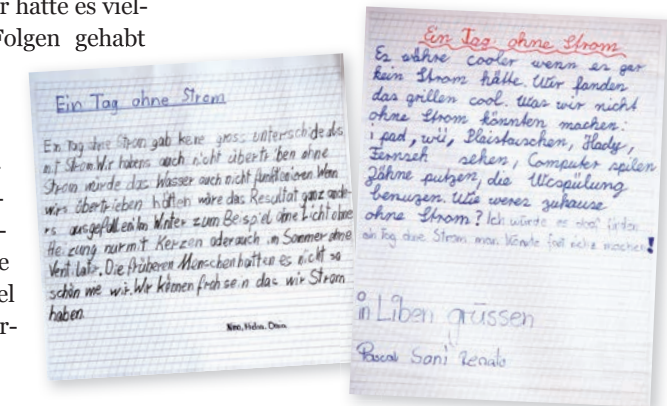 r hätte es viel-
Folgen gehabt
-
-
-
e
el
r-
Ein Tag ohne Strom
Ein Tag ohne Strom gab keine gross unterschide als
mit Strom. Wir habens auch nicht übertriben ohne
Strom würde das Wasser auch nicht funktionieren. Wenn
wirs übertrieben hätten wäre das Resultat ganz ande-
rs ausgefallen im Winter zum Beispiel ohne Licht ohne
Heizung nur mit Kerzen oder auch im Sommer ohne
Ventilator. Die früheren Menschen hatten es nicht so
schön wie wir. Wir können froh sein das wir Strom
haben.
Nino,
Ein Tag ohne Strom
Es währe cooler wenn es gar
kein Strom hätte. Wir fanden
das grillen cool. Was wir nicht
ohne Strom könnten machen:
i pad, wii, Plaistaischen, Hady,
Fernseh sehen, Computer spilen
Zähne putzen, die Wcspülung
benuzen. Wie weres zuhause
ohne Strom? Ich würde es
ein Tag ohne Strom man könnte fast nichz machen!
in Liben grüssen
Pascal Sani Renato